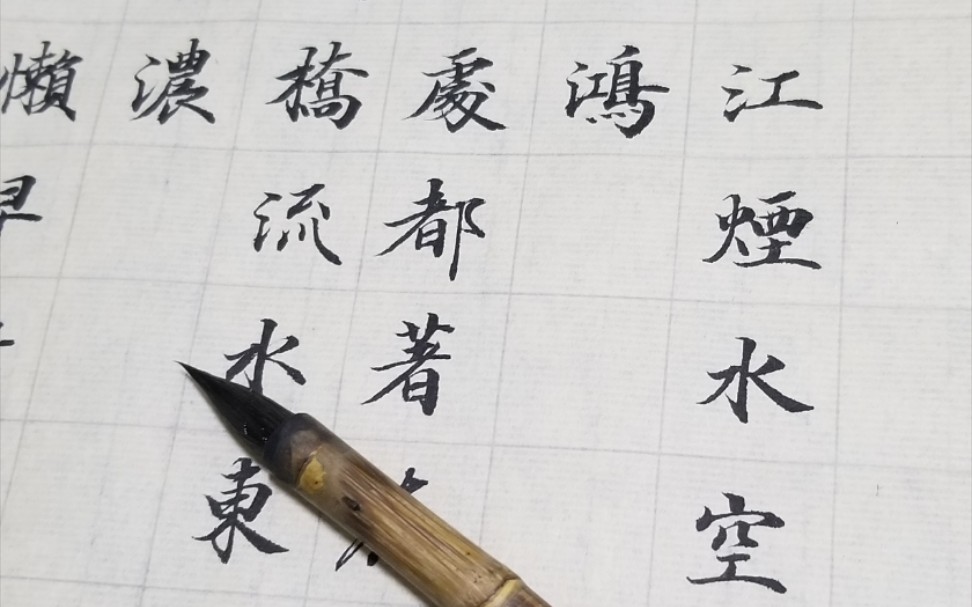 江煙水空
鴻
處都著
橋流水東
濃
懶早